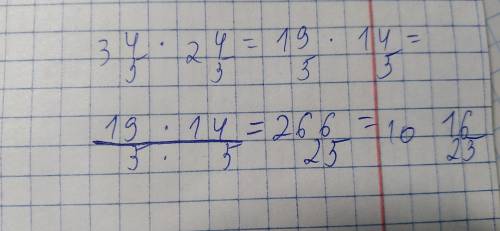 3 4/5 · 2 4/5 = 19/5 · 14/5 =
19 · 14 / 5 · 5 = 266/25 = 10 16/25